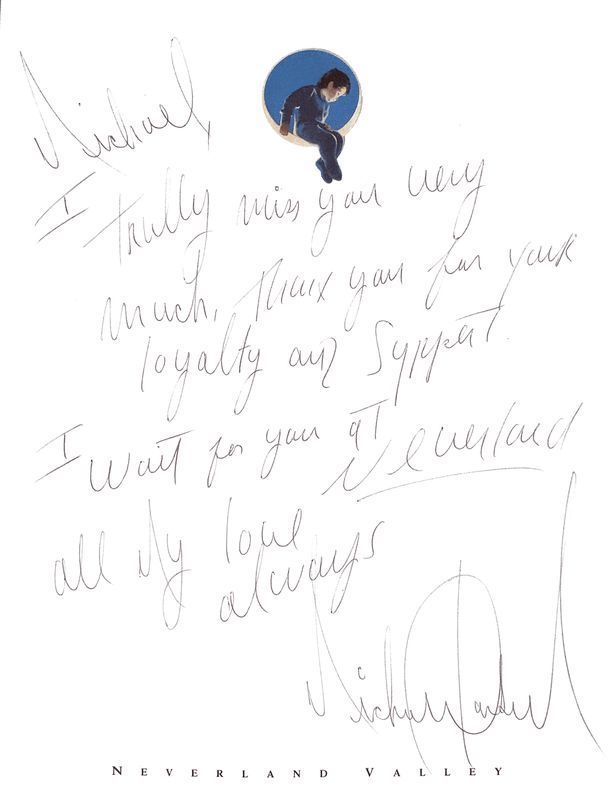 Michael,
I trully miss you very
much, Thanx you for your
loyalty and Support.
I wait for you at Neverland
all My love
always
Michael Jackson
NEVERLAND VALLEY